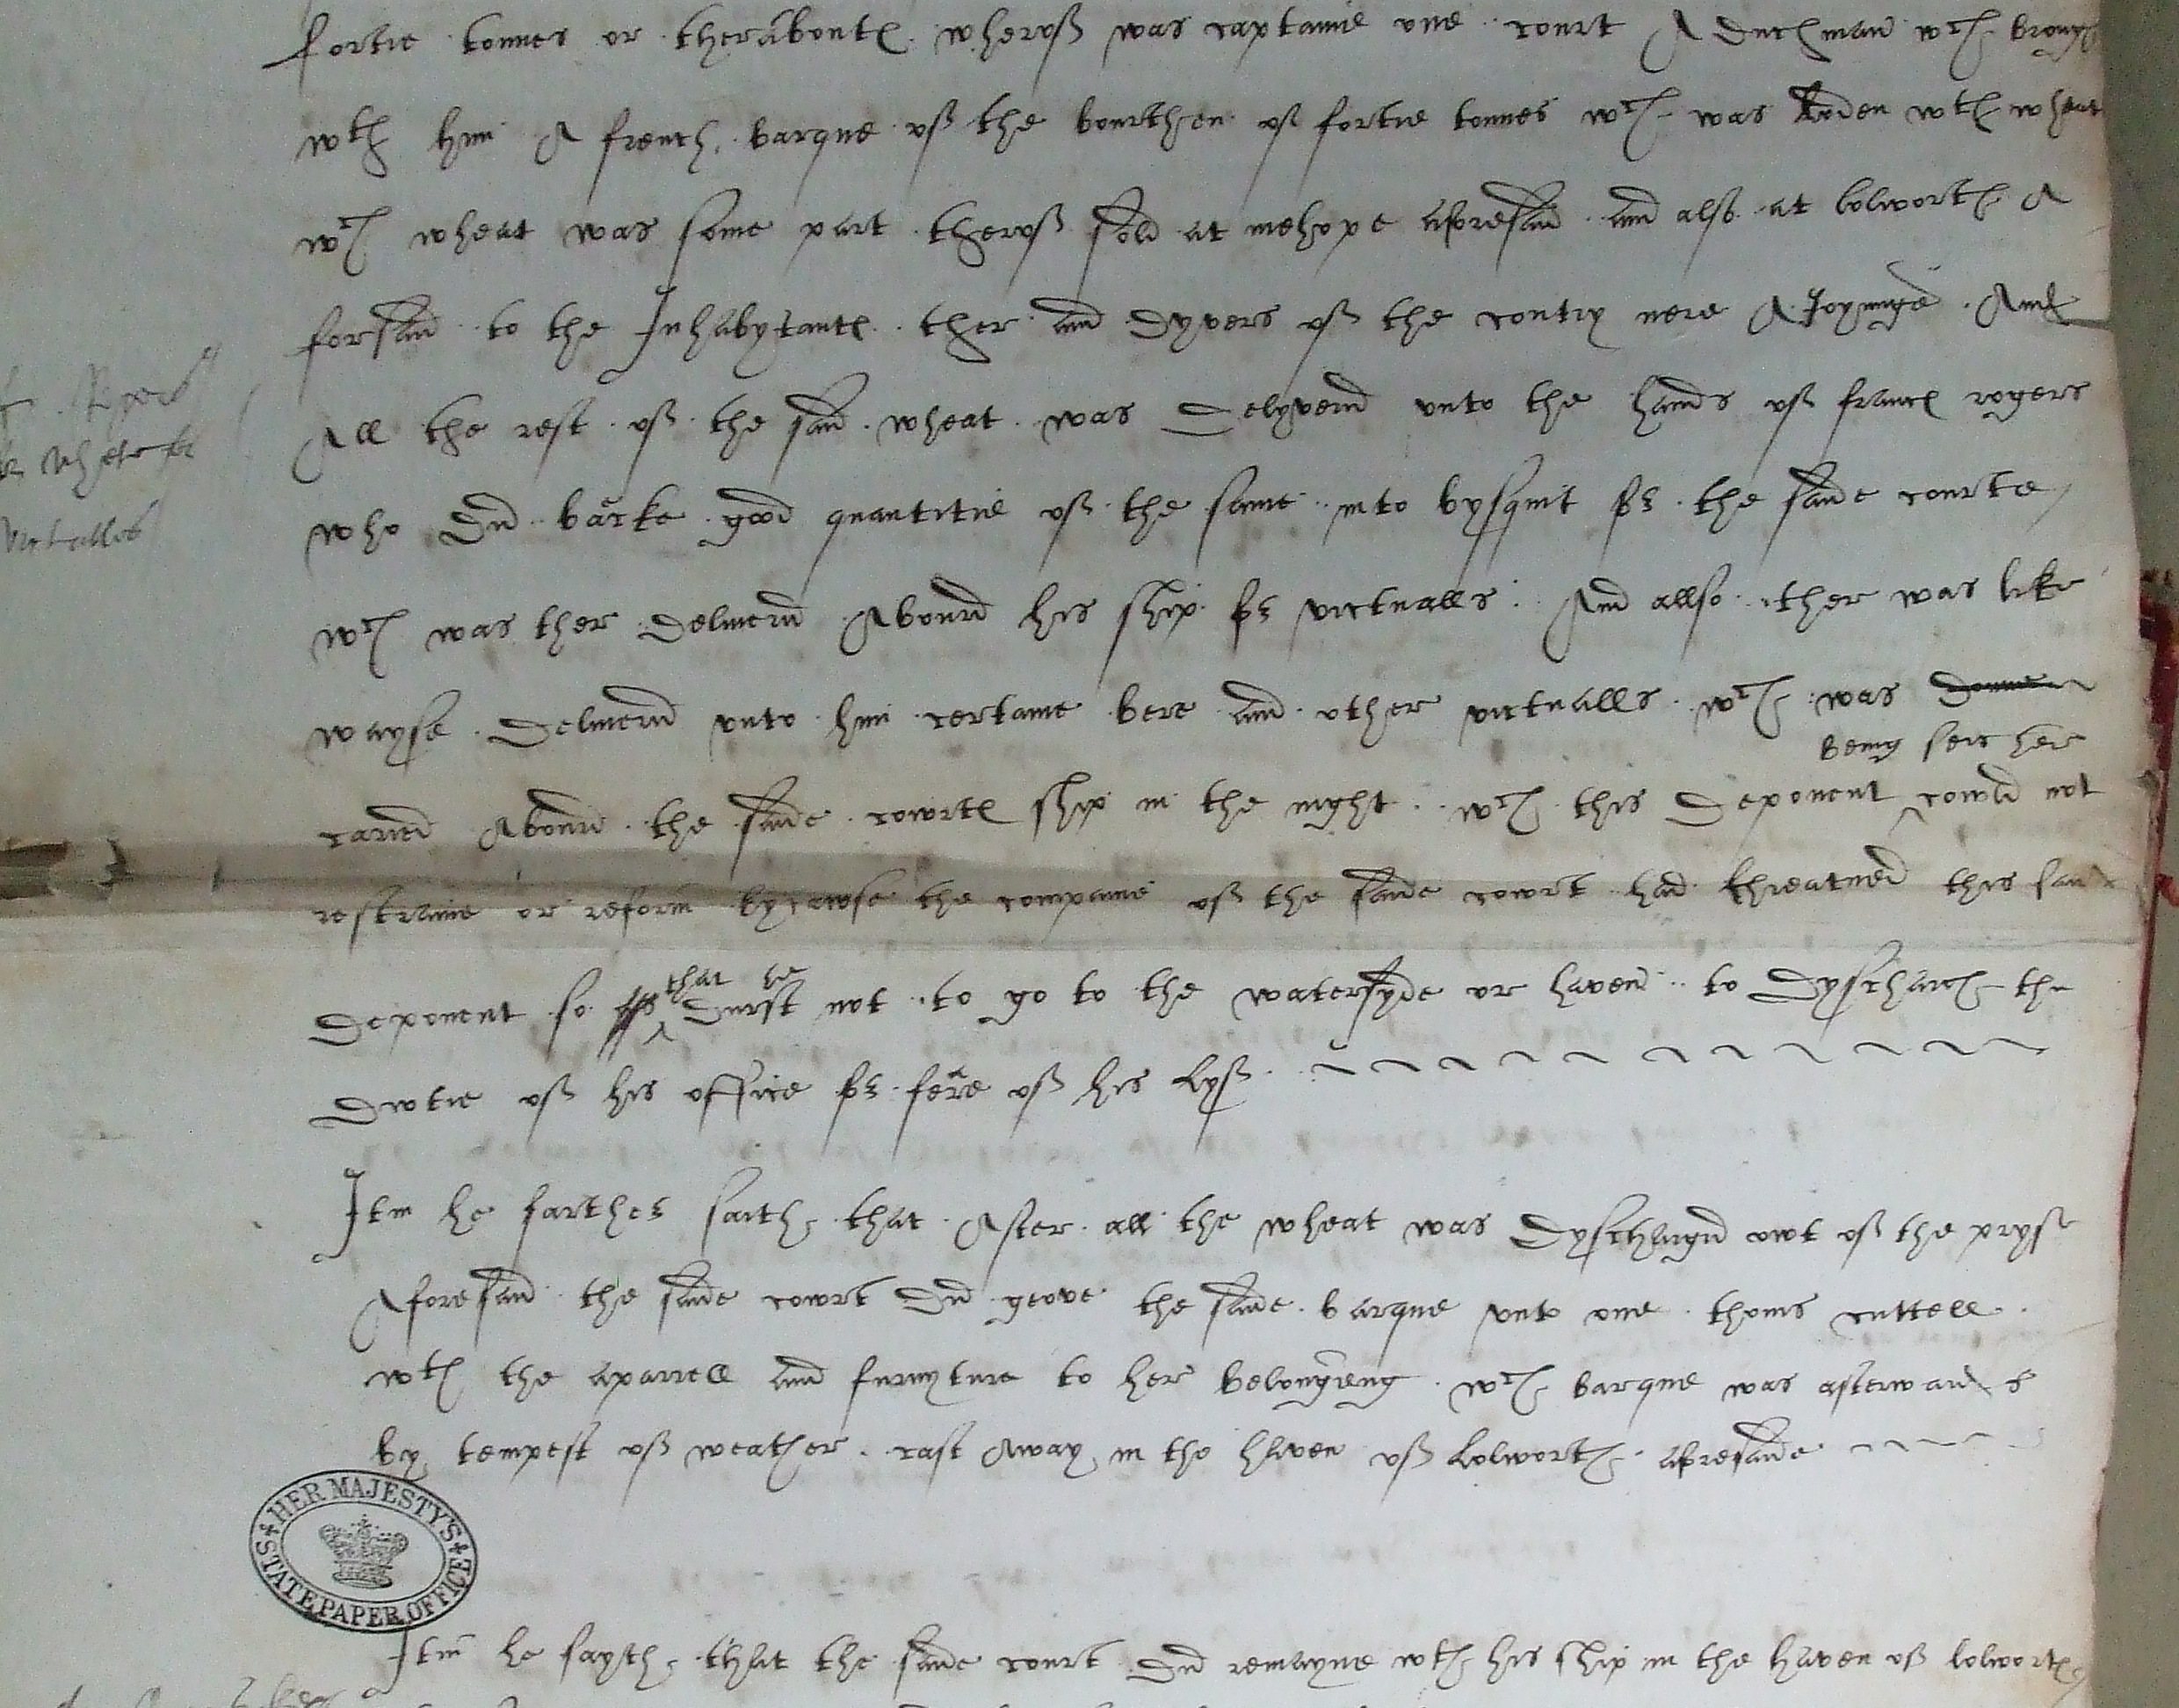 fortie tonnes or therabouts wherof was captaine one court A duchman wch brought
wth him A french barque of the bourthen of fortie tonnes wch was loden wth wheat
wch wheat was some part therof sold at mehope aforesaid and also at lolworth A
forsaid to the Inhabytants ther and dyvers of the contry nere A Joyninge And
All the rest of the said wheat was delyverid unto the hands of francs rogers
who did backe good quantitie of the same into bysquit for the saide courte
wch was ther deliverid Abourd his ship for victualls And allso ther was like
wayse deliverid unto him certaine bere and other victualls wch was
being sercher
caried Abourd the saide cowrts ship in the night wch this deponent cowld not
restraine or reform bycawse the companie of the saide cowrt had threatned this said
that he
deponent so durst not to go to the watersyde or haven to dyscharch the
dwtie of his office for feare of his lyf
Itm he farther saith that After all the wheat was dyschargid owt of the pryse
Aforesaid the saide cowrt did geove the saide barque unto one thoms cuttell
wth the aparrell and furnyture to her belongeng wch barque was afterwards
by tempest of weather cast Away in the haven of lolworth aforesaide
HER MAJESTY'S STATE PAPER OFFICE
Itm he sayth that the saide court did remayne wth his ship in the haven of lolworth
victualles